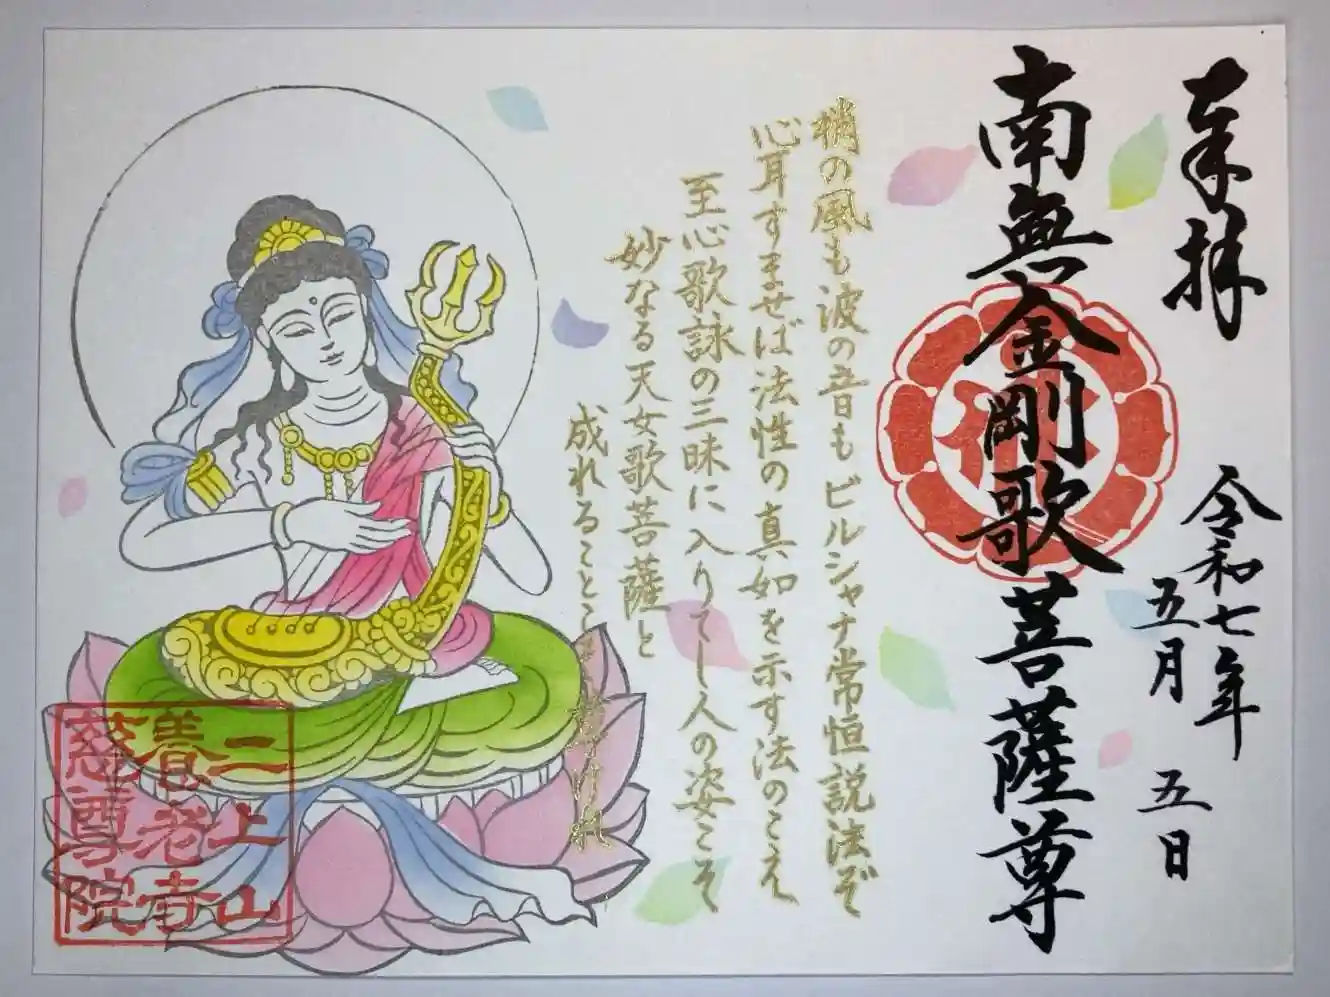 奉拝
令和七年
五月 五日
南無金剛歌菩薩尊
梢の風も波の音もビルシャナ常恒説法ぞ
心耳すませば法性の真如を示す法のこえ
至心歌詠の三昧に入りてし人の姿こそ
妙なる天女歌菩薩と
成れることこそ
けれ
二上山
養老寺
慈尊院